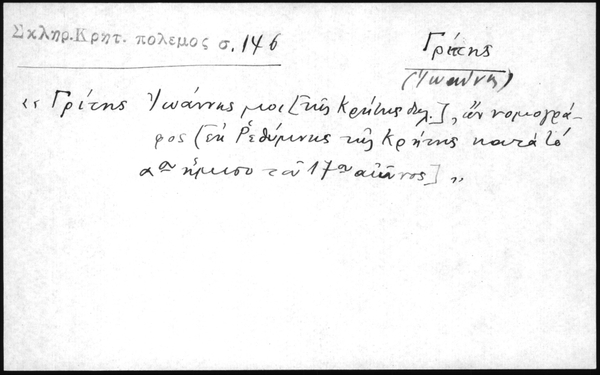 Σκληρ. Κρητ. πολεμος σ. 146
Γρίτης
(Ἰωάννης)
«Γρίτης Ἰωάννης μοι [τῆς Κρήτης δηλ.], ἦν νομογρά-
φος [ἐκ Ῥεθύμνης τῆς Κρήτης κατὰ τό
αον ἥμισυ τοῦ 17ου αἰῶνος]»